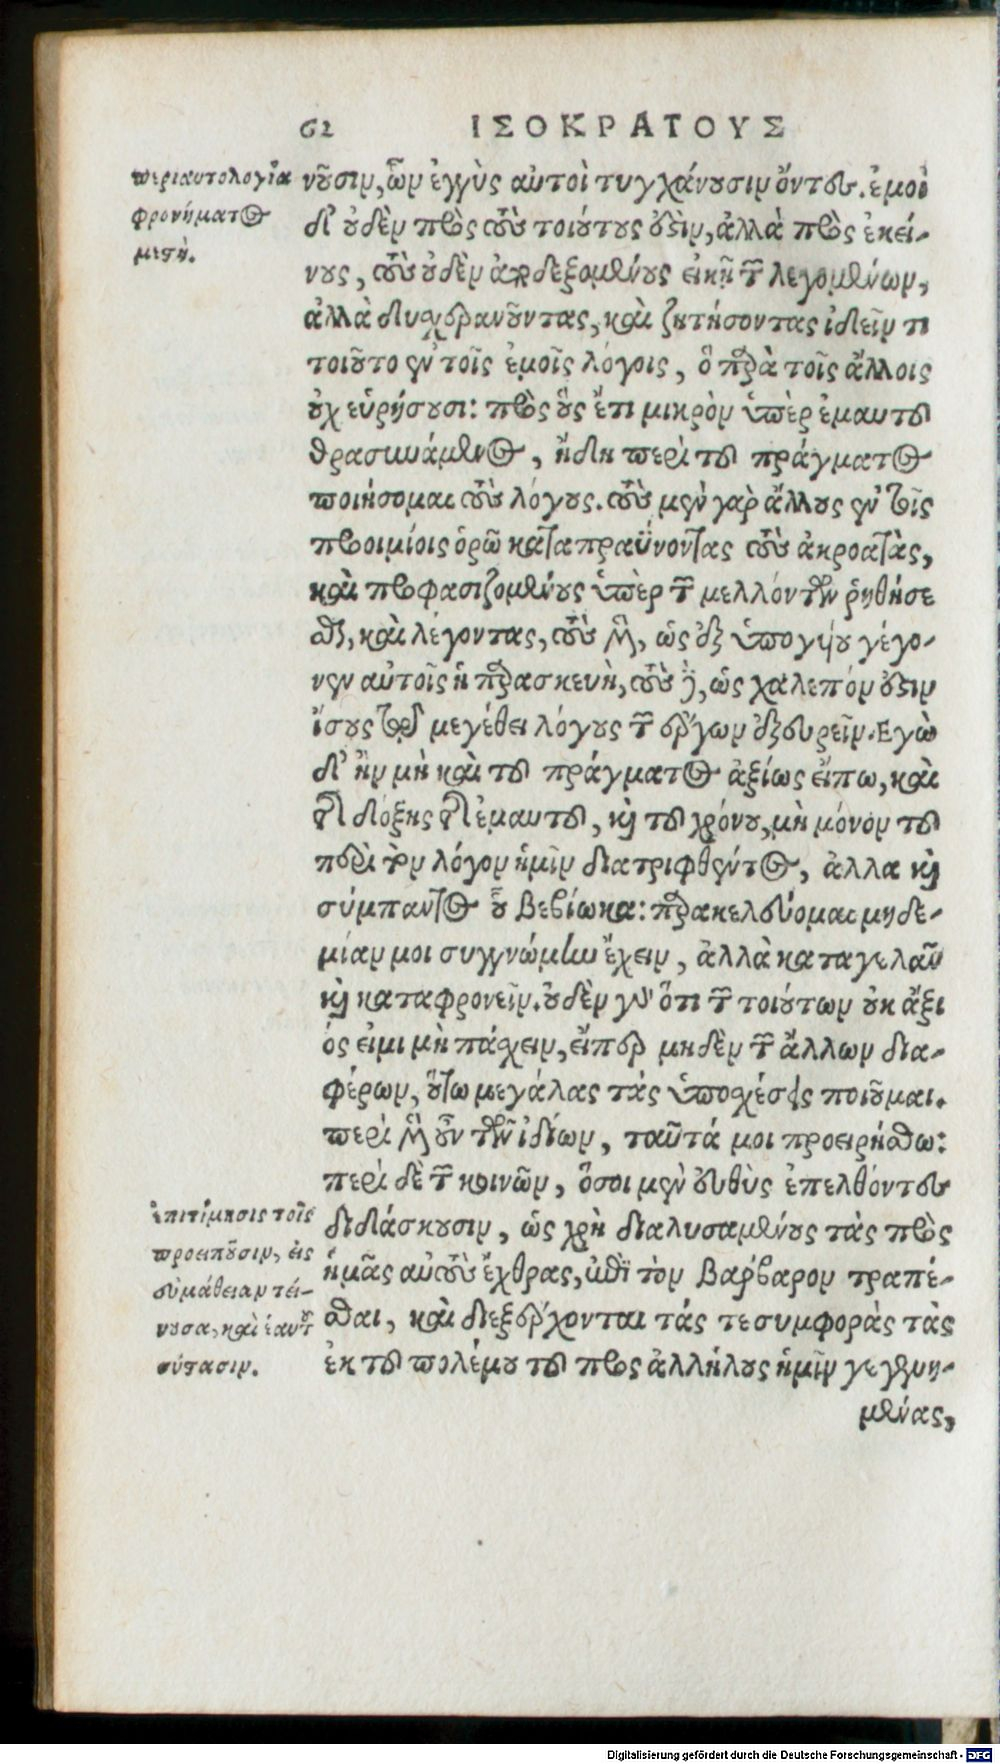 62 ΙΣΟΚΡΑΤΟΥΣ
περιαυτολογία
φρονήματος
μεστή.
νοῦσιν, ὧν ἐγγὺς αὐτοὶ τυγχάνουσιν ὄντες. ἐμοὶ
δ' οὐδὲν πρὸς τοὺς τοιούτους ὅτιν, ἀλλὰ πρὸς ἐκεί-
νους, τοὺς οὐδὲν ἀποδεξομένους εἰκῇ τῶν λεγομένων,
ἀλλὰ δυσχερανοῦντας, καὶ ζητήσοντας ἰδεῖν τι
τοιοῦτο ἐν τοῖς ἐμοῖς λόγοις, ὃ παρὰ τοῖς ἄλλοις
οὐχ εὑρήσουσι: πρὸς οὓς ἔτι μικρὸν ὑπὲρ ἐμαυτοῦ
θρασυνάμενος, ἤδη περὶ τοῦ πράγματος
ποιήσομαι τοὺς λόγους. τοὺς μὲν γὰρ ἄλλους ἐν τοῖς
προοιμίοις ὁρῶ καταπραΰνοντας τοὺς ἀκροατὰς,
καὶ προφασιζομένους ὑπὲρ τῶν μελλόντων ῥηθήσε
σθαι, καὶ λέγοντας, τοὺς μὲν, ὡς ἐξ ὑπογύου γέγο-
νεν αὐτοῖς ἡ παρασκευὴ, τοὺς δὲ, ὡς χαλεπόν ἐστιν
ἴσους τῷ μεγέθει λόγους τῶν ἔργων ἐξευρεῖν. Ἐγὼ
δ' ἢν μὴ καὶ τοῦ πράγματος ἀξίως εἴπω, καὶ
τῆς δόξης τῆς ἐμαυτοῦ, καὶ τοῦ χρόνου, μὴ μόνον τοῦ
περὶ τὸν λόγον ἡμῖν διατριφθέντος, ἀλλα καὶ
σύμπαντος οὗ βεβίωκα: παρακελεύομαι μηδε-
μίαν μοι συγγνώμην ἔχειν, ἀλλὰ καταγελᾶν
καὶ καταφρονεῖν. οὐδὲν γὰρ ὅτι τῶν τοιούτων οὐκ ἄξι
ός εἰμι μὴ πάσχειν, εἴπερ μηδὲν τῶν ἄλλων δια-
φέρων, οὕτω μεγάλας τὰς ὑποσχέσεις ποιοῦμαι.
περὶ μὲν οὖν τῶν ἰδίων, ταῦτά μοι προειρήσθω:
περὶ δὲ τῶν κοινῶν, ὅσοι μὲν εὐθὺς ἐπελθόντες
ἐπιτίμησις τοῖς
προειποῦσιν, εἰς
εὐμάθειαν τεί-
νουσα, καὶ ἑαυτοῦ
σύστασιν.
διδάσκουσιν, ὡς χρὴ διαλυσαμένους τὰς πρὸς
ἡμᾶς αὐτοὺς ἔχθρας, ἐπὶ τὸν Βάρβαρον τραπέ-
σθαι, καὶ διεξέρχονται τάς τε συμφορὰς τὰς
ἐκ τοῦ πολέμου τοῦ πρὸς ἀλλήλους ἡμῖν γεγενη-
μένας,
Digitalisierung gefördert durch die Deutsche Forschungsgemeinschaft - DFG